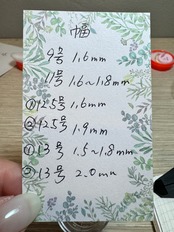 幅
9号 1.6mm
11号 1.6~1.8mm
①12.5号 1.6mm
②12.5号 1.9mm
①13号 1.5~1.8mm
②13号 2.0mm